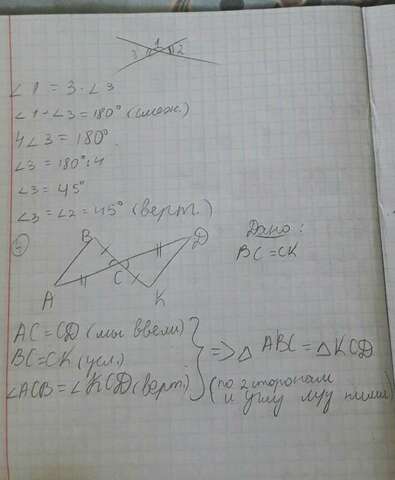 3 1 2
∠1 = 3 · ∠3
∠1 + ∠3 = 180° (смеж.)
4∠3 = 180°
∠3 = 180° : 4
∠3 = 45°
∠3 = ∠2 = 45° (верт.)
5
B D
C
A K
Дано:
BC = CK
AC = CD (мы ввели)
BC = CK (усл.)
∠ACB = ∠KCD (верт.)
=> △ABC = △KCD
(по 2 сторонам
и углу м/у ними)